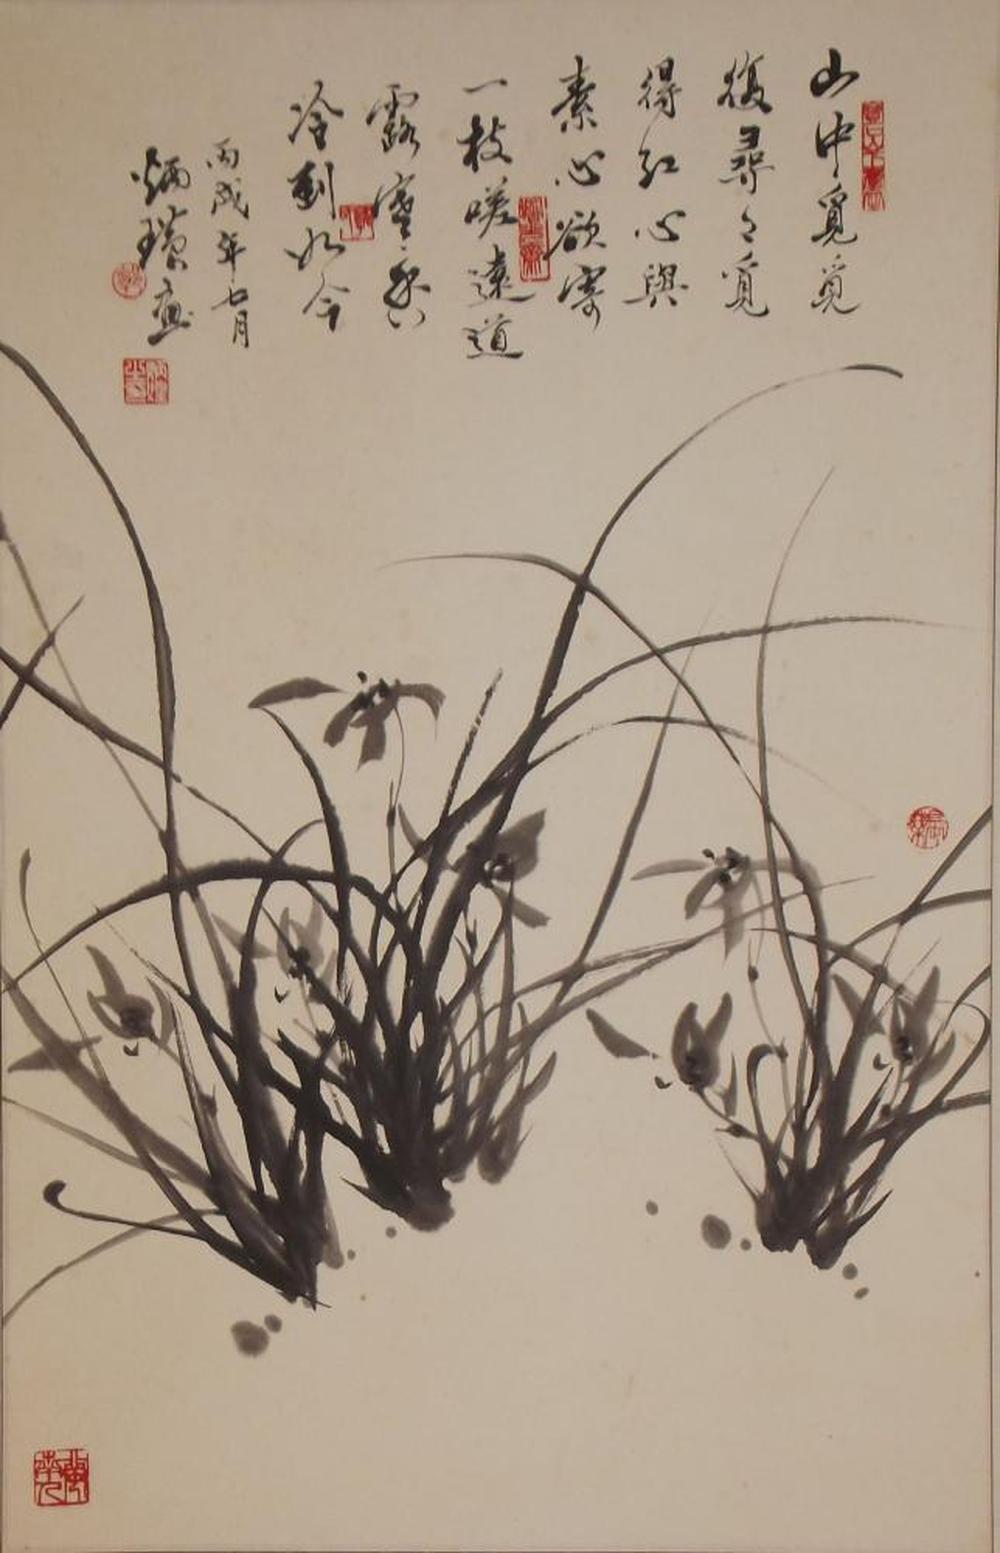 山中覓覓
復尋々覓
得紅心與
素心欲寄
一枝嗟遠道
露寒香
冷到如今
丙戌年七月
炳璜画